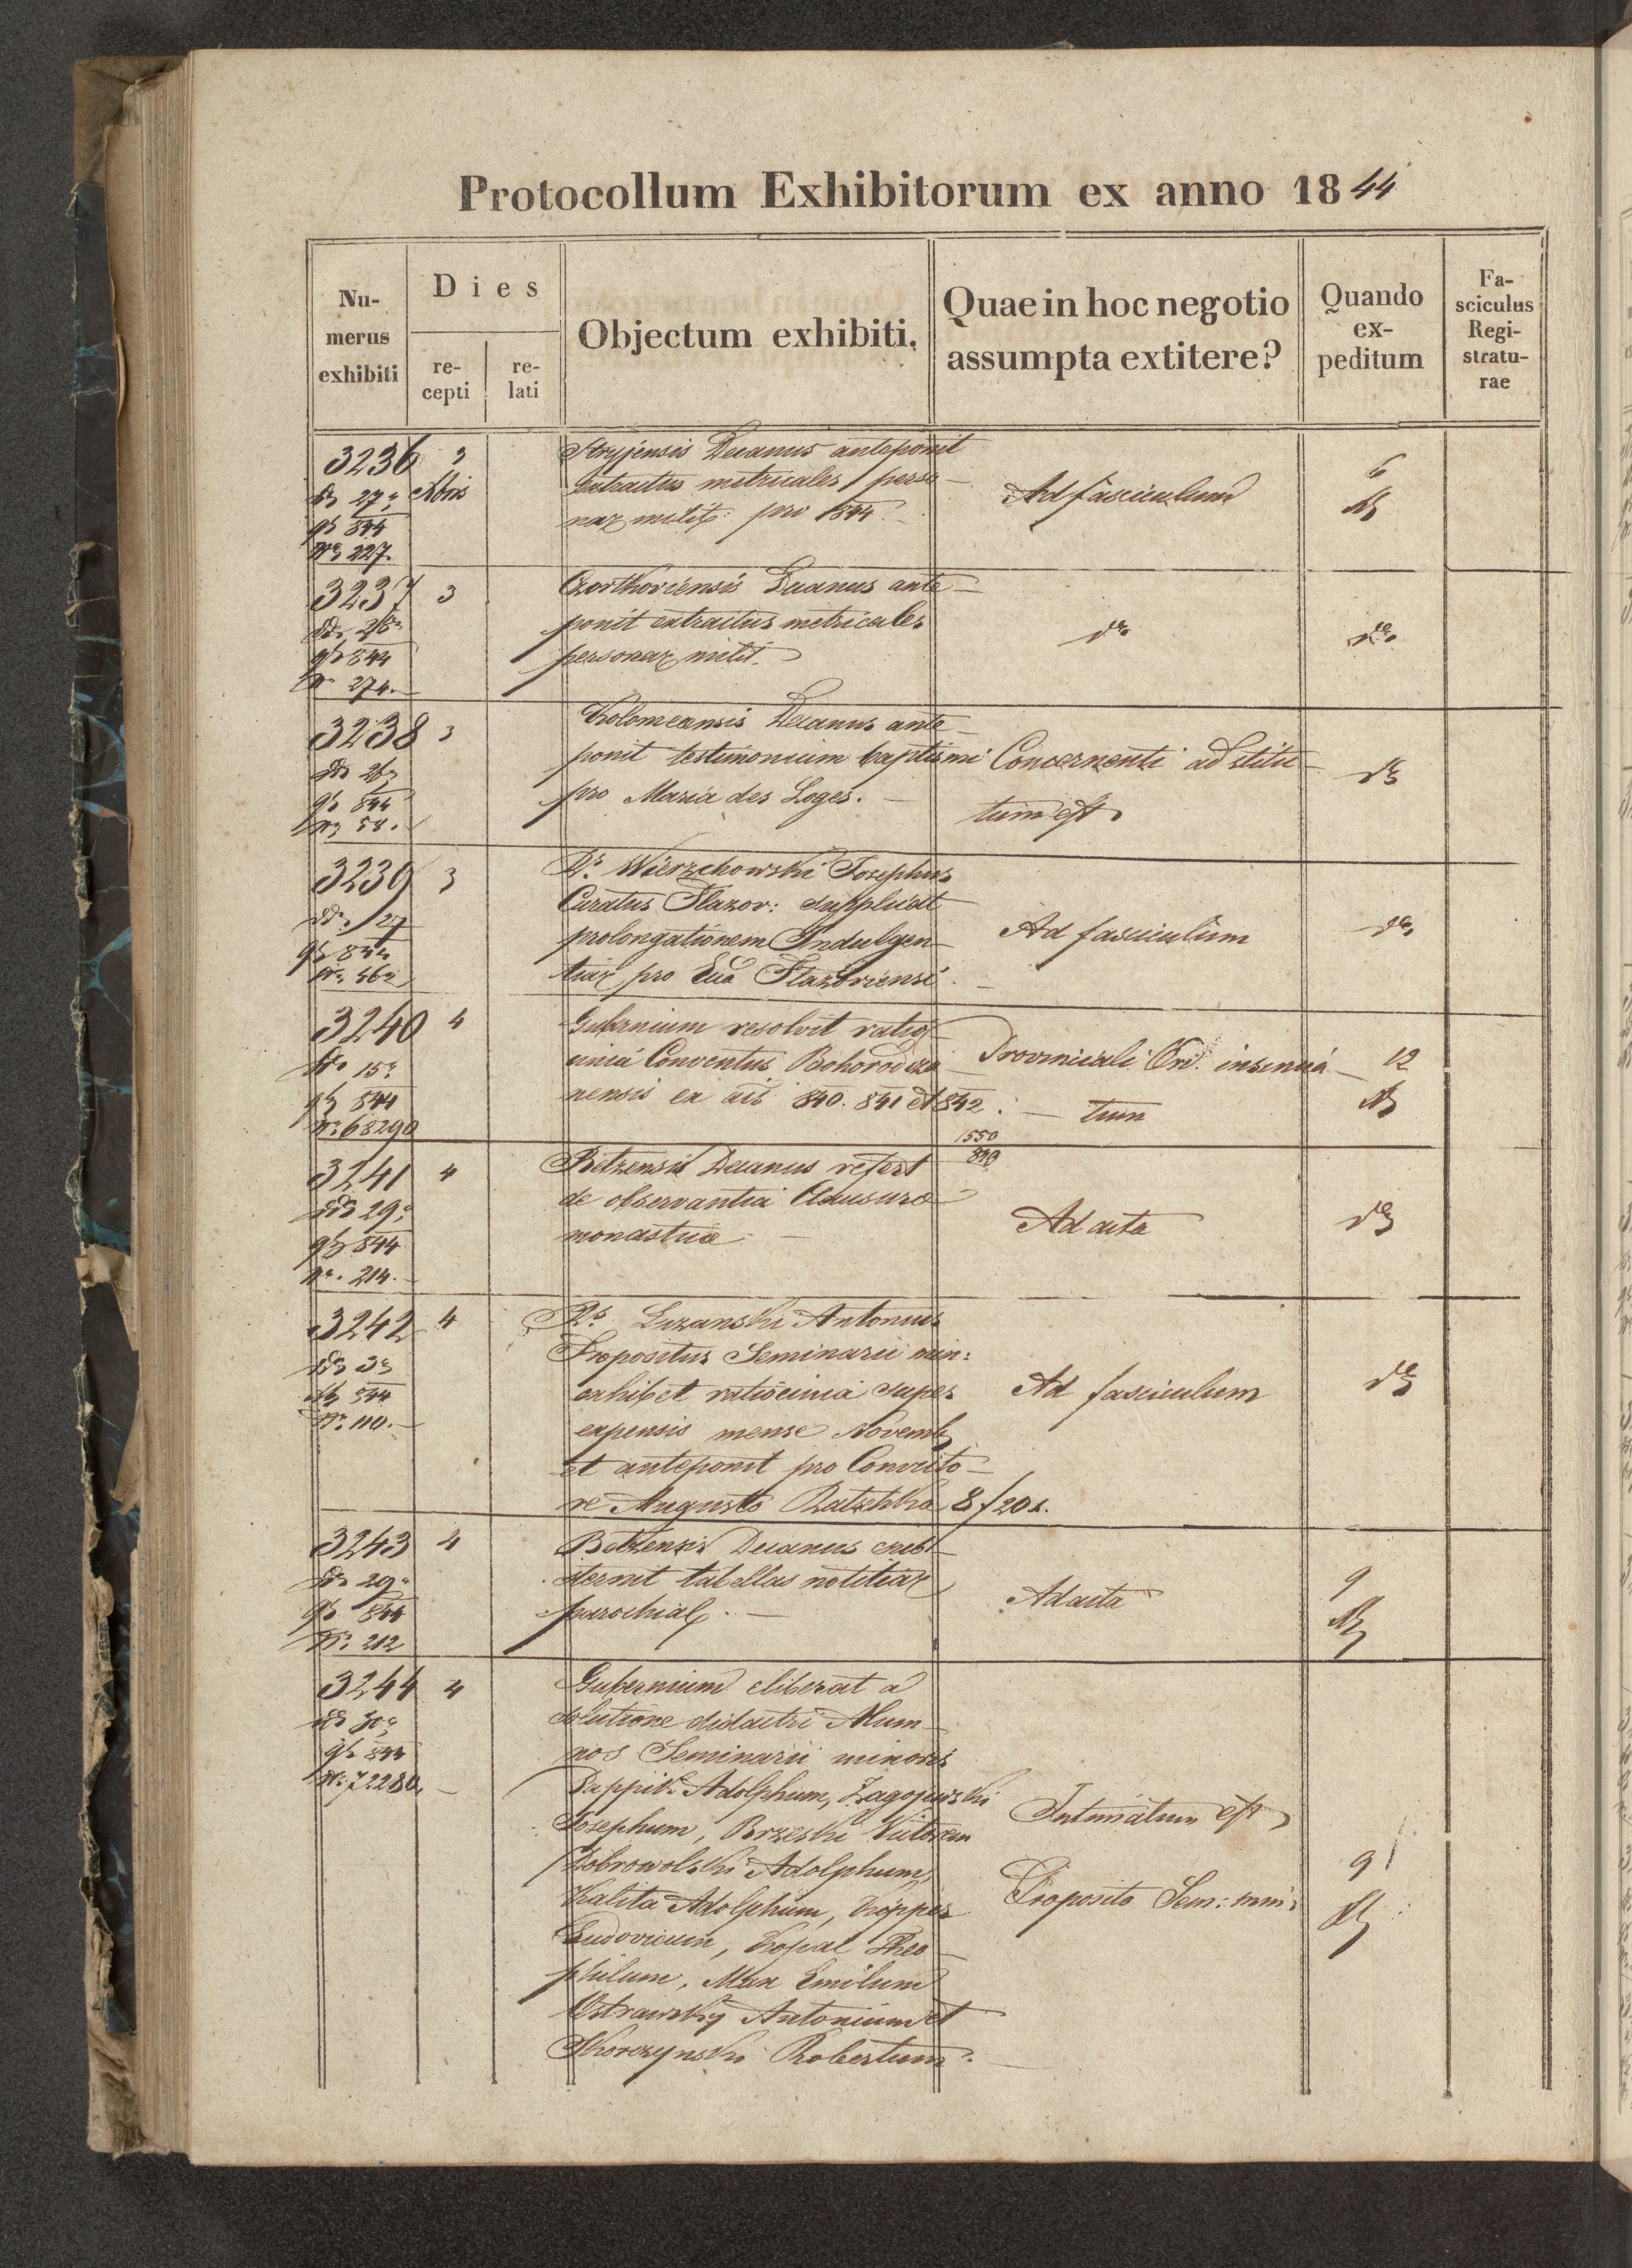 Protocollum Exhibitorum ex anno 1844
Nu-
merus
exhibiti
Dies
re-
cepti
re-
lati
Objectum exhibiti.
Quae in hoc negotio
assumpta extitere?
Quando
ex-
peditum
Fa-
sciculus
Regi-
stratu-
rae
3236 3
27
844
227.
Stryjensis Decanus anteponit
extractus metricales perso-
nar milit: pro 1844.
Ad fasciculum
6
3237 3
844
No 274.
Czortkoviensis Decanus ante-
ponit extractus metricales
personar milit.
dto
dto
3238 3
844
58.
Kolomeansis Decanus ante-
ponit testimonium baptismi
pro Maria des Loges.
Concernenti adstitu-
tum est
dto
3239 3
27
Rs. Wierzchowski Josephus
Curatus Flazov: supplicat
prolongationem Indulgen-
tiar pro Flazoviensi
Ad fasciculum
dto
3240 4
15
844
No 68290
Gubernium resolvit ratio
cinia Conventus Bohorodcza-
nensis ex 840. 841 et 842.
Provinciali Ord. insinua-
tum
12
3241 4
29
844
No. 214.
1550
840
Betzensis Decanus refert
de observantia Clausurae
monastica
Ad acta
dto
3242 4
844
No 110.
Rs. Lizanski Antonius
Propositus Seminarii min:
exhibet ratiocinia super
expensis mense Novemb
et anteponit pro Convicto-
re Augusto Ratschka 8 f 20 x.
Ad fasciculum
dto
3243 4
29
844
No 212
Betzensis Decanus sub-
sternit tabellas notitiar
parochial.
Ad acta
9
3244 4
30
844
No 72280.
Gubernium eliberat a
solutione didactri Alum-
nos Seminarii minoris
Adolphum, Zagojewski
Josephum, Brzeski Victorem
Dobrowolski Adolphum,
Kalita Adolphum, Köpper
Ludovicum, Kopal Theo-
philum, Max Emilum
Ostrawsky Antonium et
Skorczynski Robertum.
Intimatum est
Proposito Sem: min:
9